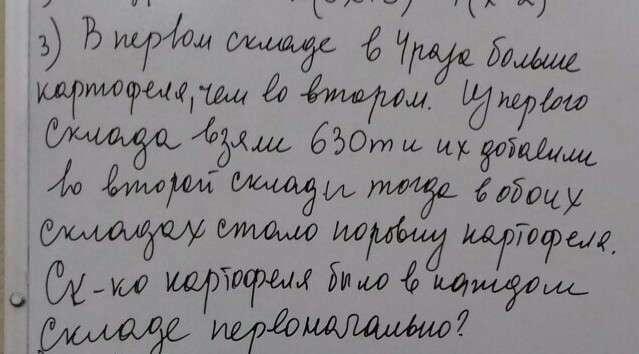 3) В первом складе в 4 раза больше
картофеля, чем во втором. Из первого
склада взяли 630т и их добавили
во второй склад и тогда в обоих
складах стало поровну картофеля.
Ск-ко картофеля было в каждом
складе первоначально?